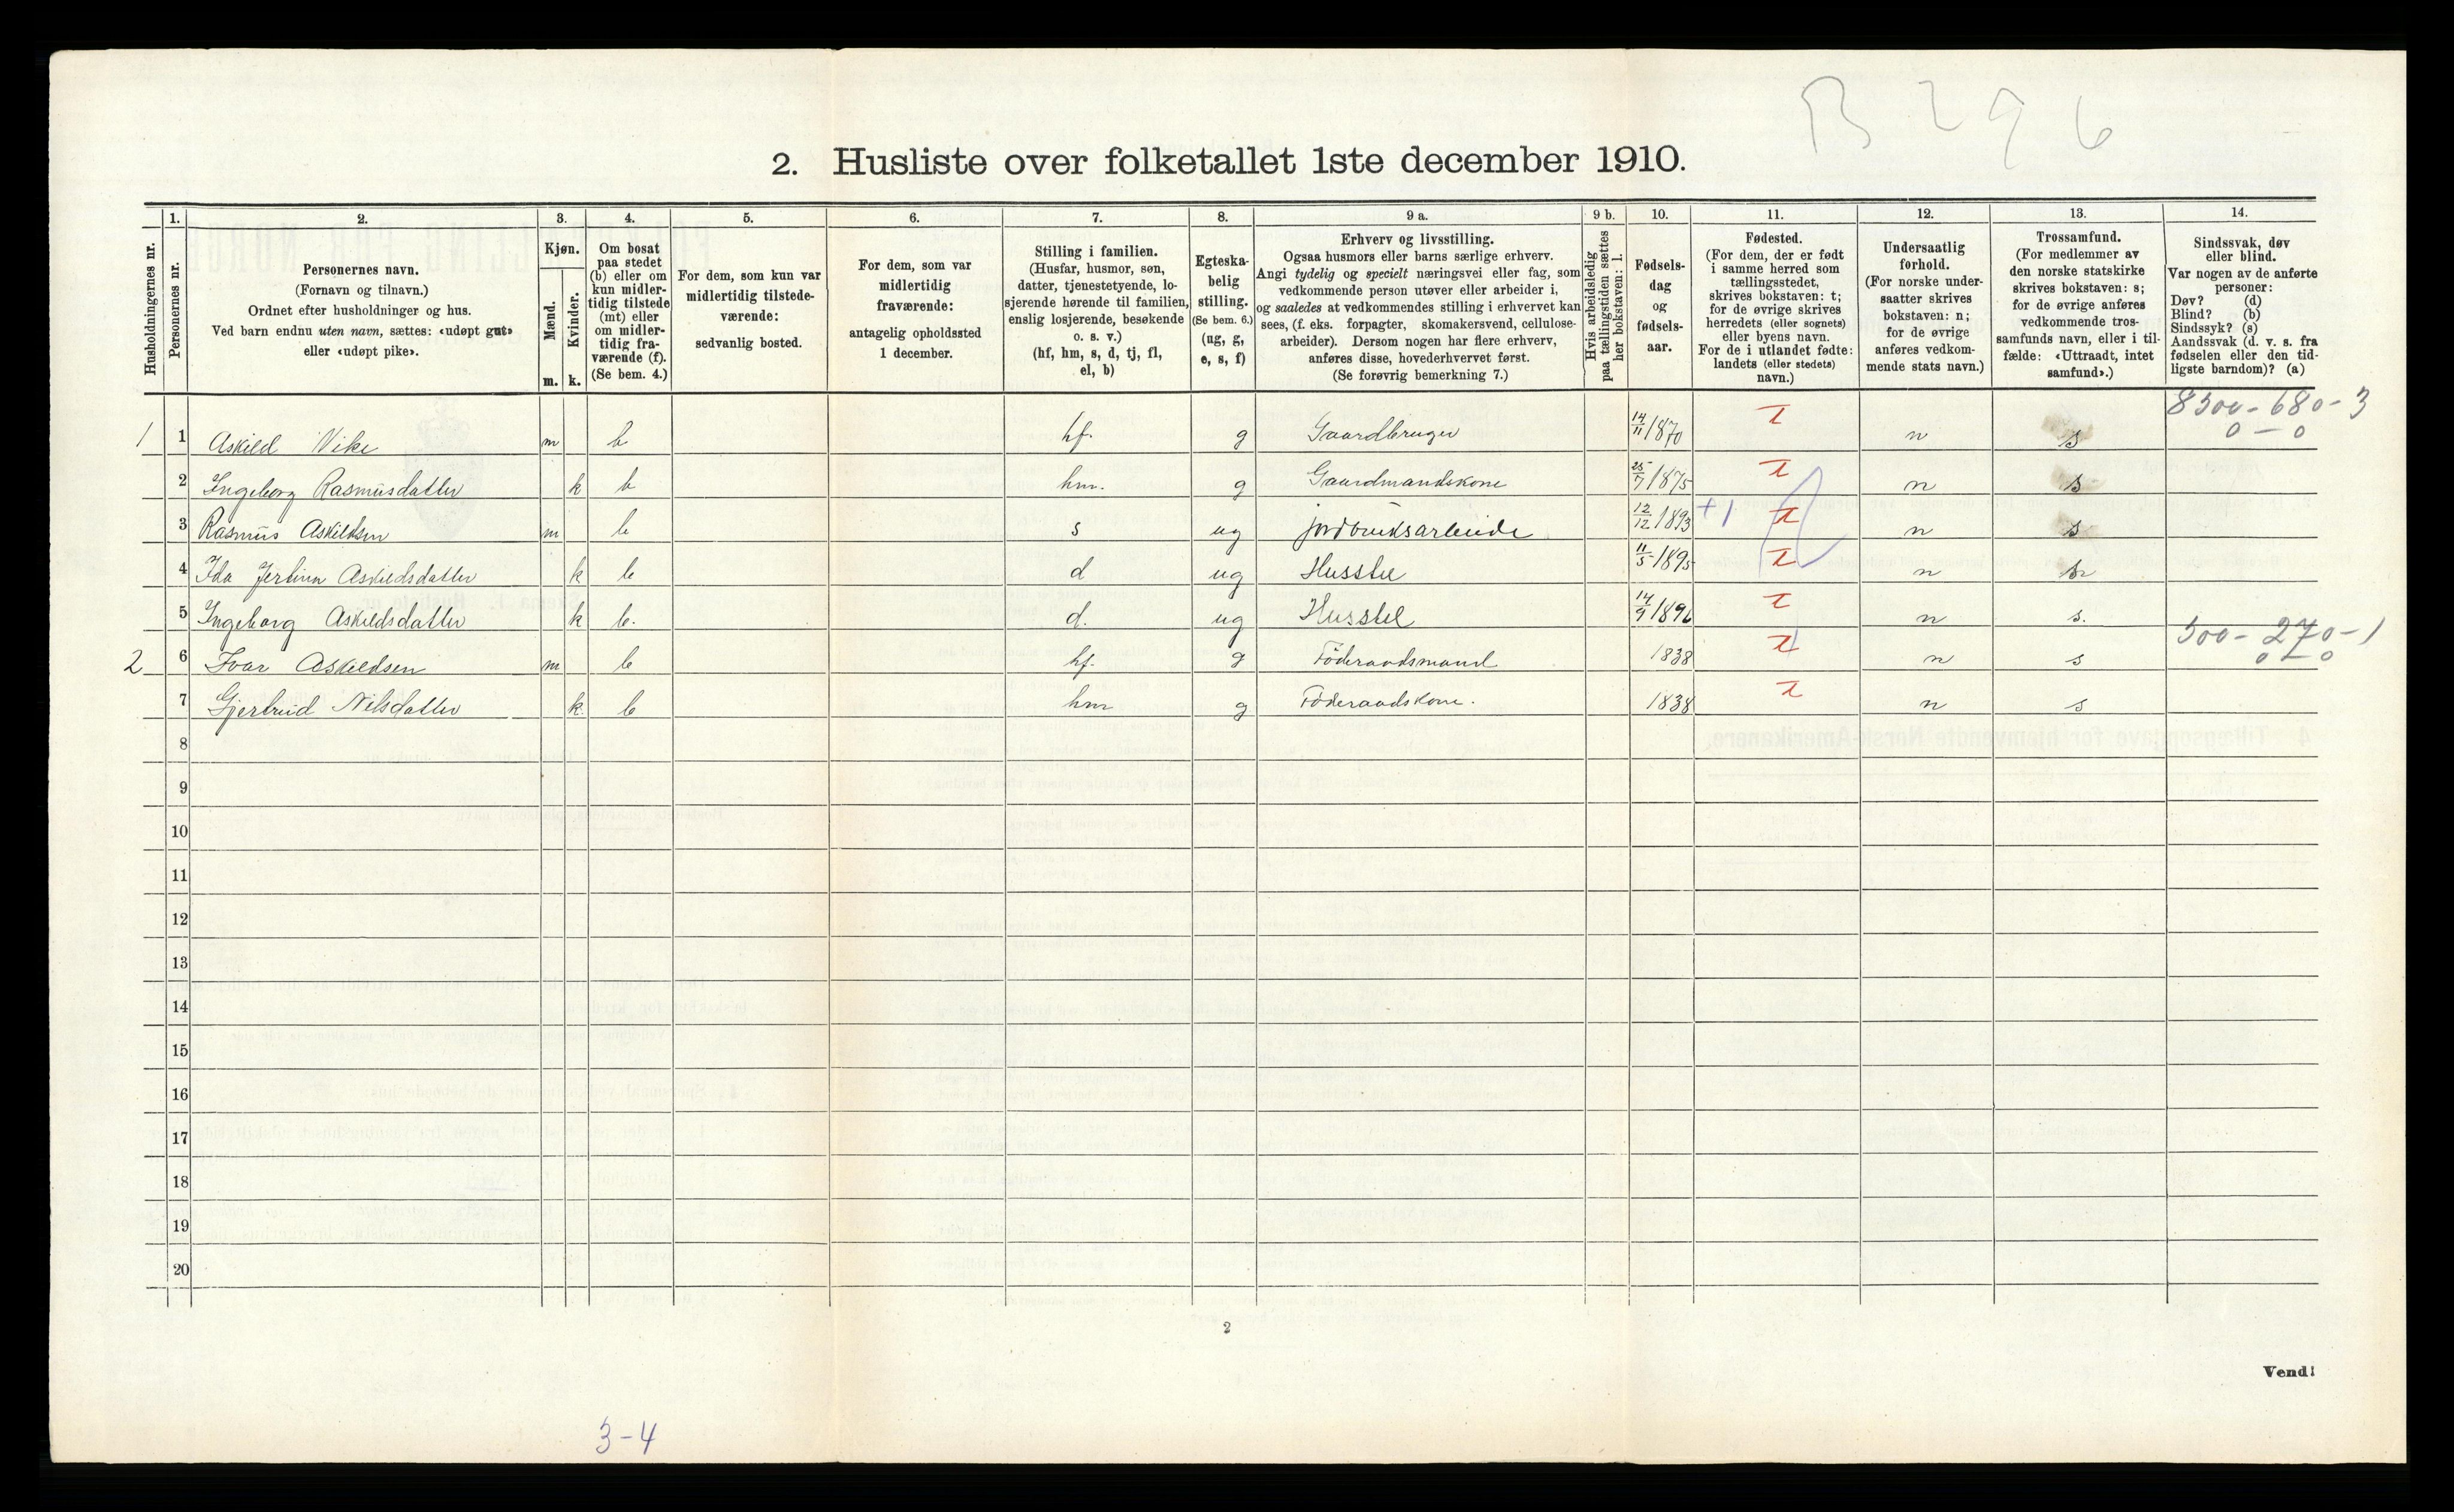 B 296
2. Husliste over folketallet 1ste december 1910.
1. 2. 3. 4. 5. 6. 7. 8. 9 a. 9 b. 10. 11. 12. 13. 14.
Husholdningernes nr.
Personernes nr.
Personernes navn.
(Fornavn og tilnavn.)
Ordnet efter husholdninger og hus.
Ved barn endnu uten navn, sættes: «udøpt gut»
eller «udøpt pike».
Kjøn.
Mænd.
Kvinder.
m. k.
Om bosat
paa stedet
(b) eller om
kun midler-
tidig tilstede
(mt) eller
om midler-
tidig fra-
værende (f).
(Se bem. 4.)
For dem, som kun var
midlertidig tilstede-
værende:
sedvanlig bosted.
For dem, som var
midlertidig
fraværende:
antagelig opholdssted
1 december.
Stilling i familien.
(Husfar, husmor, søn,
datter, tjenestetyende, lo-
sjerende hørende til familien,
enslig losjerende, besøkende
o. s. v.)
(hf, hm, s, d, tj, fl,
el, b)
Egteska-
belig
stilling.
(Se bem. 6.)
(ug, g,
e, s, f)
Erhverv og livsstilling.
Ogsaa husmors eller barns særlige erhverv.
Angi tydelig og specielt næringsvei eller fag, som
vedkommende person utøver eller arbeider i,
og saaledes at vedkommendes stilling i erhvervet kan
sees, (f. eks. forpagter, skomakersvend, cellulose-
arbeider). Dersom nogen har flere erhverv,
anføres disse, hovederhvervet først.
(Se forøvrig bemerkning 7.)
Hvis arbeidsledig
paa tællingstiden sættes
her bokstaven: l.
Fødsels-
dag
og
fødsels-
aar.
Fødested.
(For dem, der er født
i samme herred som
tællingsstedet,
skrives bokstaven: t;
for de øvrige skrives
herredets (eller sognets)
eller byens navn.
For de i utlandet fødte:
landets (eller stedets)
navn.)
Undersaatlig
forhold.
(For norske under-
saatter skrives
bokstaven: n;
for de øvrige
anføres vedkom-
mende stats navn.)
Trossamfund.
(For medlemmer av
den norske statskirke
skrives bokstaven: s;
for de øvrige anføres
vedkommende tros-
samfunds navn, eller i til-
fælde: «Uttraadt, intet
samfund».)
Sindssvak, døv
eller blind.
Var nogen av de anførte
personer:
Døv? (d)
Blind? (b)
Sindssyk? (s)
Aandssvak (d. v. s. fra
fødselen eller den tid-
ligste barndom)? (a)
8300 - 680 - 3
0 - 0
1 1 Askild Vike m b hf. g Gaardbruger 14/11 1870 t n s
2 Ingeborg Rasmusdatter k b hm. g Gaardmandskone 25/7 1875 t n s
3 Rasmus Askildsen m b s ug jordbruksarbeide 12/12 1893 +1 t n s
4 Ida Jertina Askildsdatter k b d ug Husstel 11/5 1895 t n s
5 Ingeborg Askildsdatter k b. d. ug Husstel 14/9 1896 t n s.
300 - 270 - 1
0 - 0
2 6 Ivar Askildsen m b hf. g Föderaadsmand 1838 t n s
7 Gjertrud Nilsdatter k. b hm g Föderaadskone. 1838 t n s
8
9
10
11
12
13
14
15
16
17
18
19
20
2
Vend!
3-4